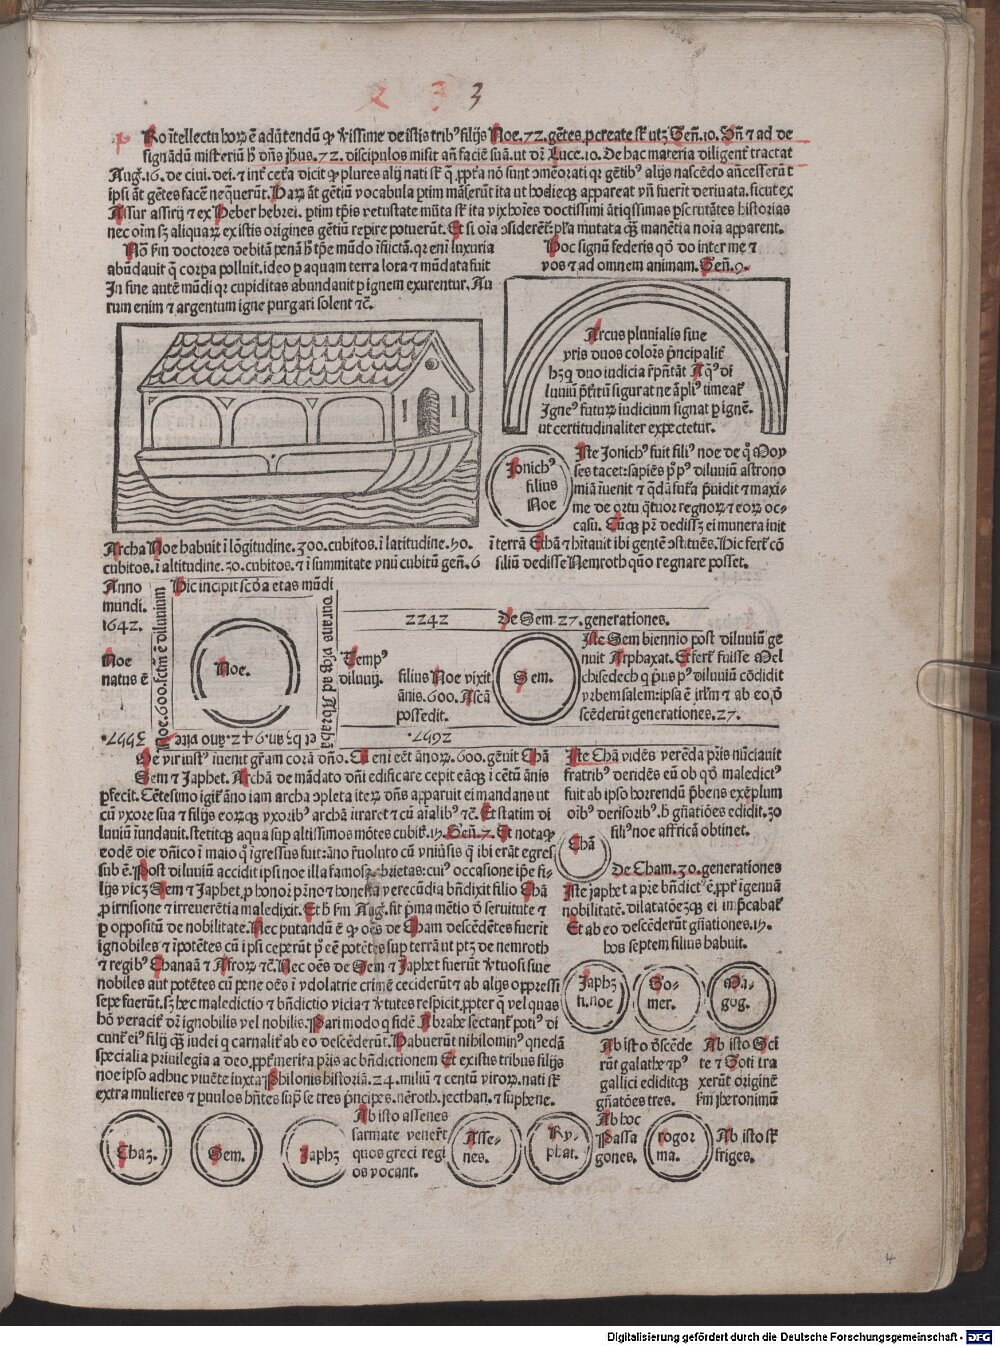 3 3
Ro ītellectu hoꝝ ē aduʼtendū ꝙ vʼissime de istis tribꝰ filijs Noe.72.gētes ꝓcreate sūt utꝫ Geñ.10. Oñ ⁊ ad de
signādū misteriū h̄ dñs ihus.72.discipulos misit añ faciē suā.ut dʼr Luce.10. De hac materia diligent̄ tractat
Aug.16.de ciui.dei.⁊ int̄ cet̄a dicit ꝙ plures alij nati st̄ q̄ ꝓpt̄ea nō sunt ↄmēorati qʼr gētibꝰ alijs nascēdo añcesserūt
ipsi āt gētes facē neq̄uerūt. Haꝝ āt gētiū vocabula ꝑtim māserūt ita ut hodieqꝫ appareat vñ fuerīt deriuata.sicut ex
Assur assirij ⁊ ex Heber hebrei. ꝑtim tp̄is vetustate mūta st̄ ita vix hoīes doctissimi ātiqssimas ꝑscrutātes historias
nec oīm sꝫ aliquaꝝ ex istis origines gētiū repire potuerūt. Et si oīa ↄsiderēt: pl̄a mutata qꝫ̄ manētia noīa apparent.
Nō s̄m doctores debitā penā h̄ tp̄e mūdo īflictā.qʼr enī luxuria
abūdauit q̄ corpa polluit.ideo ꝑ aquam terra lota ⁊ mūdata fuit
In fine autē mūdi qʼr cupiditas abundauit ꝑ ignem exurentur. Au
rum enim ⁊ argentum igne purgari solent ⁊c̄.
Hoc signū federis qō do inter me ⁊
vos ⁊ ad omnem animam. Geñ.9.
Arcus pluuialis siue
yris duos colores p̄ncipalit̄
hꝫ q̄ duo iudicia rp̄ñtāt Aqꝰ di
luuiū p̄t̄itū figurat ne āpliꝰ timeat̄
Igneꝰ futuꝝ iudicium signat ꝑ ignē.
ut certitudinaliter expectetur.
Jonichꝰ
filius
Noe
Iste Jonichꝰ fuit filiꝰ noe de q̄ Moy
ses tacet:sapiēs pʼ pꝰ diluuiū astrono
miā īuenit ⁊ q̄dā fut̄a p̄uidit ⁊ maxi-
me de ortu q̄tuor regnoꝝ ⁊ eoꝝ oc-
casu. Cuiqꝫ pr̄ dedissꝫ ei munera iuit
ī terrā Ethā ⁊ hītauit ibi gentē ↄstituēs. Hic fert̄ cō
siliū dedisse Nemroth quō regnare posset.
Archa Noe habuit ī lōgitudine.300.cubitos.ī latitudine.50.
cubitos.ī altitudine.30.cubitos.⁊ ī summitate vnū cubitū geñ.6
Anno
mundi.
1642.
Noe
natus ē
Hic incipit scōa etas mūdi
durans vsqꝫ ad Abrahā
et hꝫ añ.942.āno vite
Noe.600.fctm̄ ē diluuium
Noe.
3557.
Tempꝰ
diluuij.
2242
De Sem.27.generationes.
filius Noe vixit
ānis.600. Asiā
possedit.
Sem.
2657.
Iste Sem biennio post diluuiū ge
nuit Arphaxat. Et fert̄ fuisse Mel
chisedech q pʼus pꝰ diluuiū cōdidit
vrbem salem:ipsa ē irlm̄ ⁊ ab eo d̄
scēderūt generationes.27.
Sem ⁊ Japhet. Archā de mādato dñi edificare cepit eāqꝫ ī cētū ānis
ꝑfecit. Cētesimo igit̄ āno iam archa ↄpleta iteꝝ dñs apparuit ei mandans ut
cū vxore sua ⁊ filijs eoꝝqꝫ vxoribꝰ archā itraret ⁊ cū aīalibꝰ ⁊c̄. Et statim di
luuiū īundauit.stetitqꝫ aqua sup altissimos mōtes cubit̄.15. Geñ.7. Et nota ꝙ
eodē die dñico ī maio q̄ īgressus fuit:āno r̄uoluto cū vniūsis q̄ ibi erāt egres
sub ē. Post diluuiū accidit ipsi noe illa famosa ebrietas:cuiꝰ occasione ip̄e fi-
lijs vicꝫ Sem ⁊ Japhet.ꝓ honore prʼno ⁊ honesta verecūdia bn̄dixit filio Chā
ꝓ irrisione ⁊ irreuerētia maledixit. Et h̄ s̄m Aug.fit pʼma mētio d̄ seruitute ⁊
ꝑ oppositū de nobilitate. Nec putandū ē ꝙ oēs de Cham descēdētes fuerīt
ignobiles ⁊ īpotētes cū ipsi ceperūt pʼ eē potētes sup terrā ut ptꝫ de nemroth
⁊ regibꝰ Chanaā ⁊ Afroꝝ ⁊c̄. Nec oēs de Sem ⁊ Japhet fuerūt vʼtuosi siue
nobiles aut potētes cū pene oēs ī ydolatrie crimē ceciderūt ⁊ ab alijs oppressi
sepe fuerūt.sꝫ hec maledictio ⁊ bn̄dictio vicia ⁊ vʼtutes respicit.ꝓpter q̄ vel quas
hō veracit̄ dʼr ignobilis vel nobilis. Pari modo q fidē Abrahe sectant̄ potiꝰ di
cunt̄ eiꝰ filij qꝫ̄ iudei q carnalit̄ ab eo descēderūt. Habuerūt nihilominꝰ quedā
specialia priuilegia a deo.ꝓpt̄ merita prʼis ac bn̄dictionem Et ex istis tribus filijs
noe ipso adhuc viuēte iuxta Philonis historiā.24.miliū ⁊ centū viroꝝ.nati st̄
extra mulieres ⁊ ꝑuulos hn̄tes supʼ se tres pʼncipes.nēroth.jecthan.⁊ suphene.
Iste Chā vidēs verēda prʼis nūciauit
fratribꝰ deridēs eū ob qō maledictꝰ
fuit ab ipso horrendū p̄bens exēplum
oībꝰ derisoribꝰ.h̄ gn̄atiōes edidit.30
filiꝰ noe affricā obtinet.
Chā
De Cham.30.generationes
Iste japhet a prʼe bn̄dictꝰ ē ꝓpt̄ īgenuā
nobilitatē. dilatatōeꝫqꝫ ei īprʼcabat̄
Et ab eo descēderūt gn̄ationes.15.
hos septem filius habuit.
Japhꝫ
fi.noe
Go-
mer.
Ma-
gog.
Ab isto d̄scēde
rūt galathe ⁊ pꝰ
gallici ediditqꝫ
gn̄atōes tres.
Ab isto Sci
te ⁊ Goti tra
xerūt originē
s̄m iheronimū
Chaꝫ.
Sem.
Japhꝫ
Ab isto assenes
sarmate venerūt
quos greci regi
os vocant.
Asse-
nes.
Ry-
phat.
Ab hoc
Passa
gones.
rogor
ma.
Ab isto st̄
friges.
4
Digitalisierung gefördert durch die Deutsche Forschungsgemeinschaft - DFG